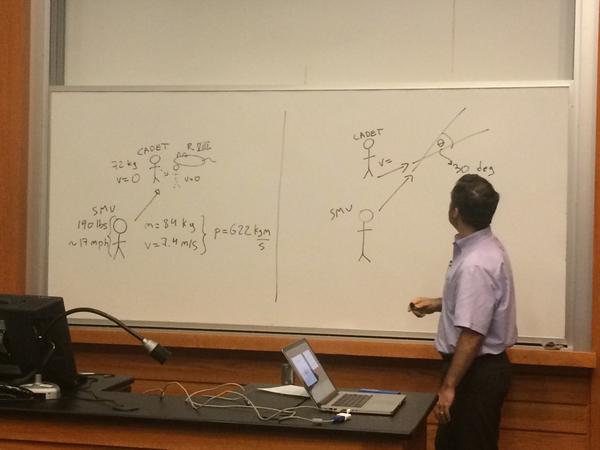 CADET
R VIII
72 kg
v=0
v=0
SMV
190 lbs
~17 mph
m = 84 kg
v = 7.4 m/s
p = 622 kg m
s
CADET
v=
θ
30 deg
SMV